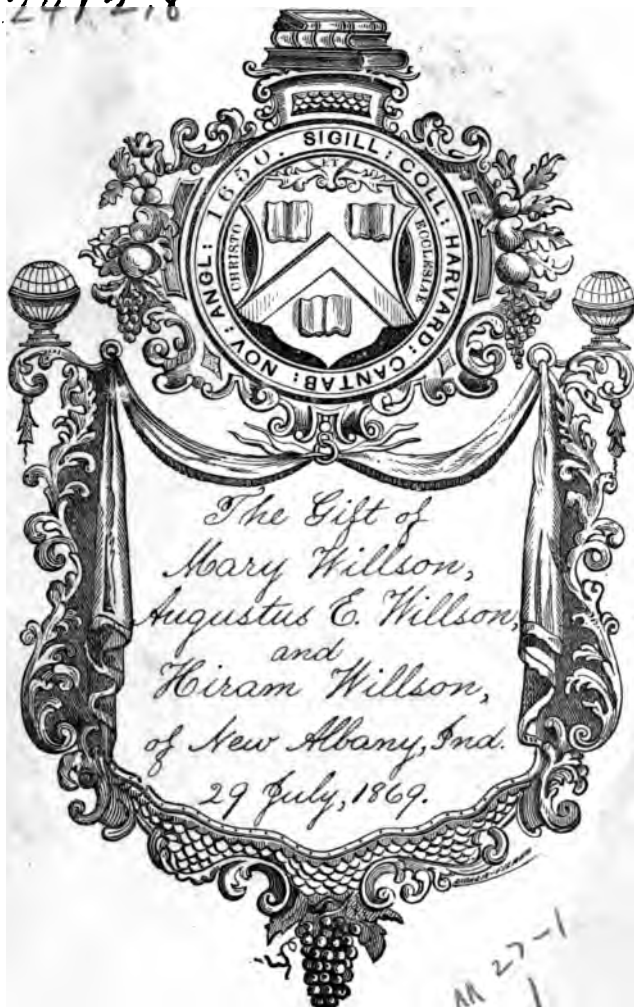 SIGILL : COLL : HARVARD : CANTAB : NOV : ANGL : 1650.
ET
CHRISTO
ECCLESIAE
The Gift of
Mary Willson,
Augustus E. Willson,
and
Hiram Willson,
of New Albany, Ind.
29 July, 1869.
27-1